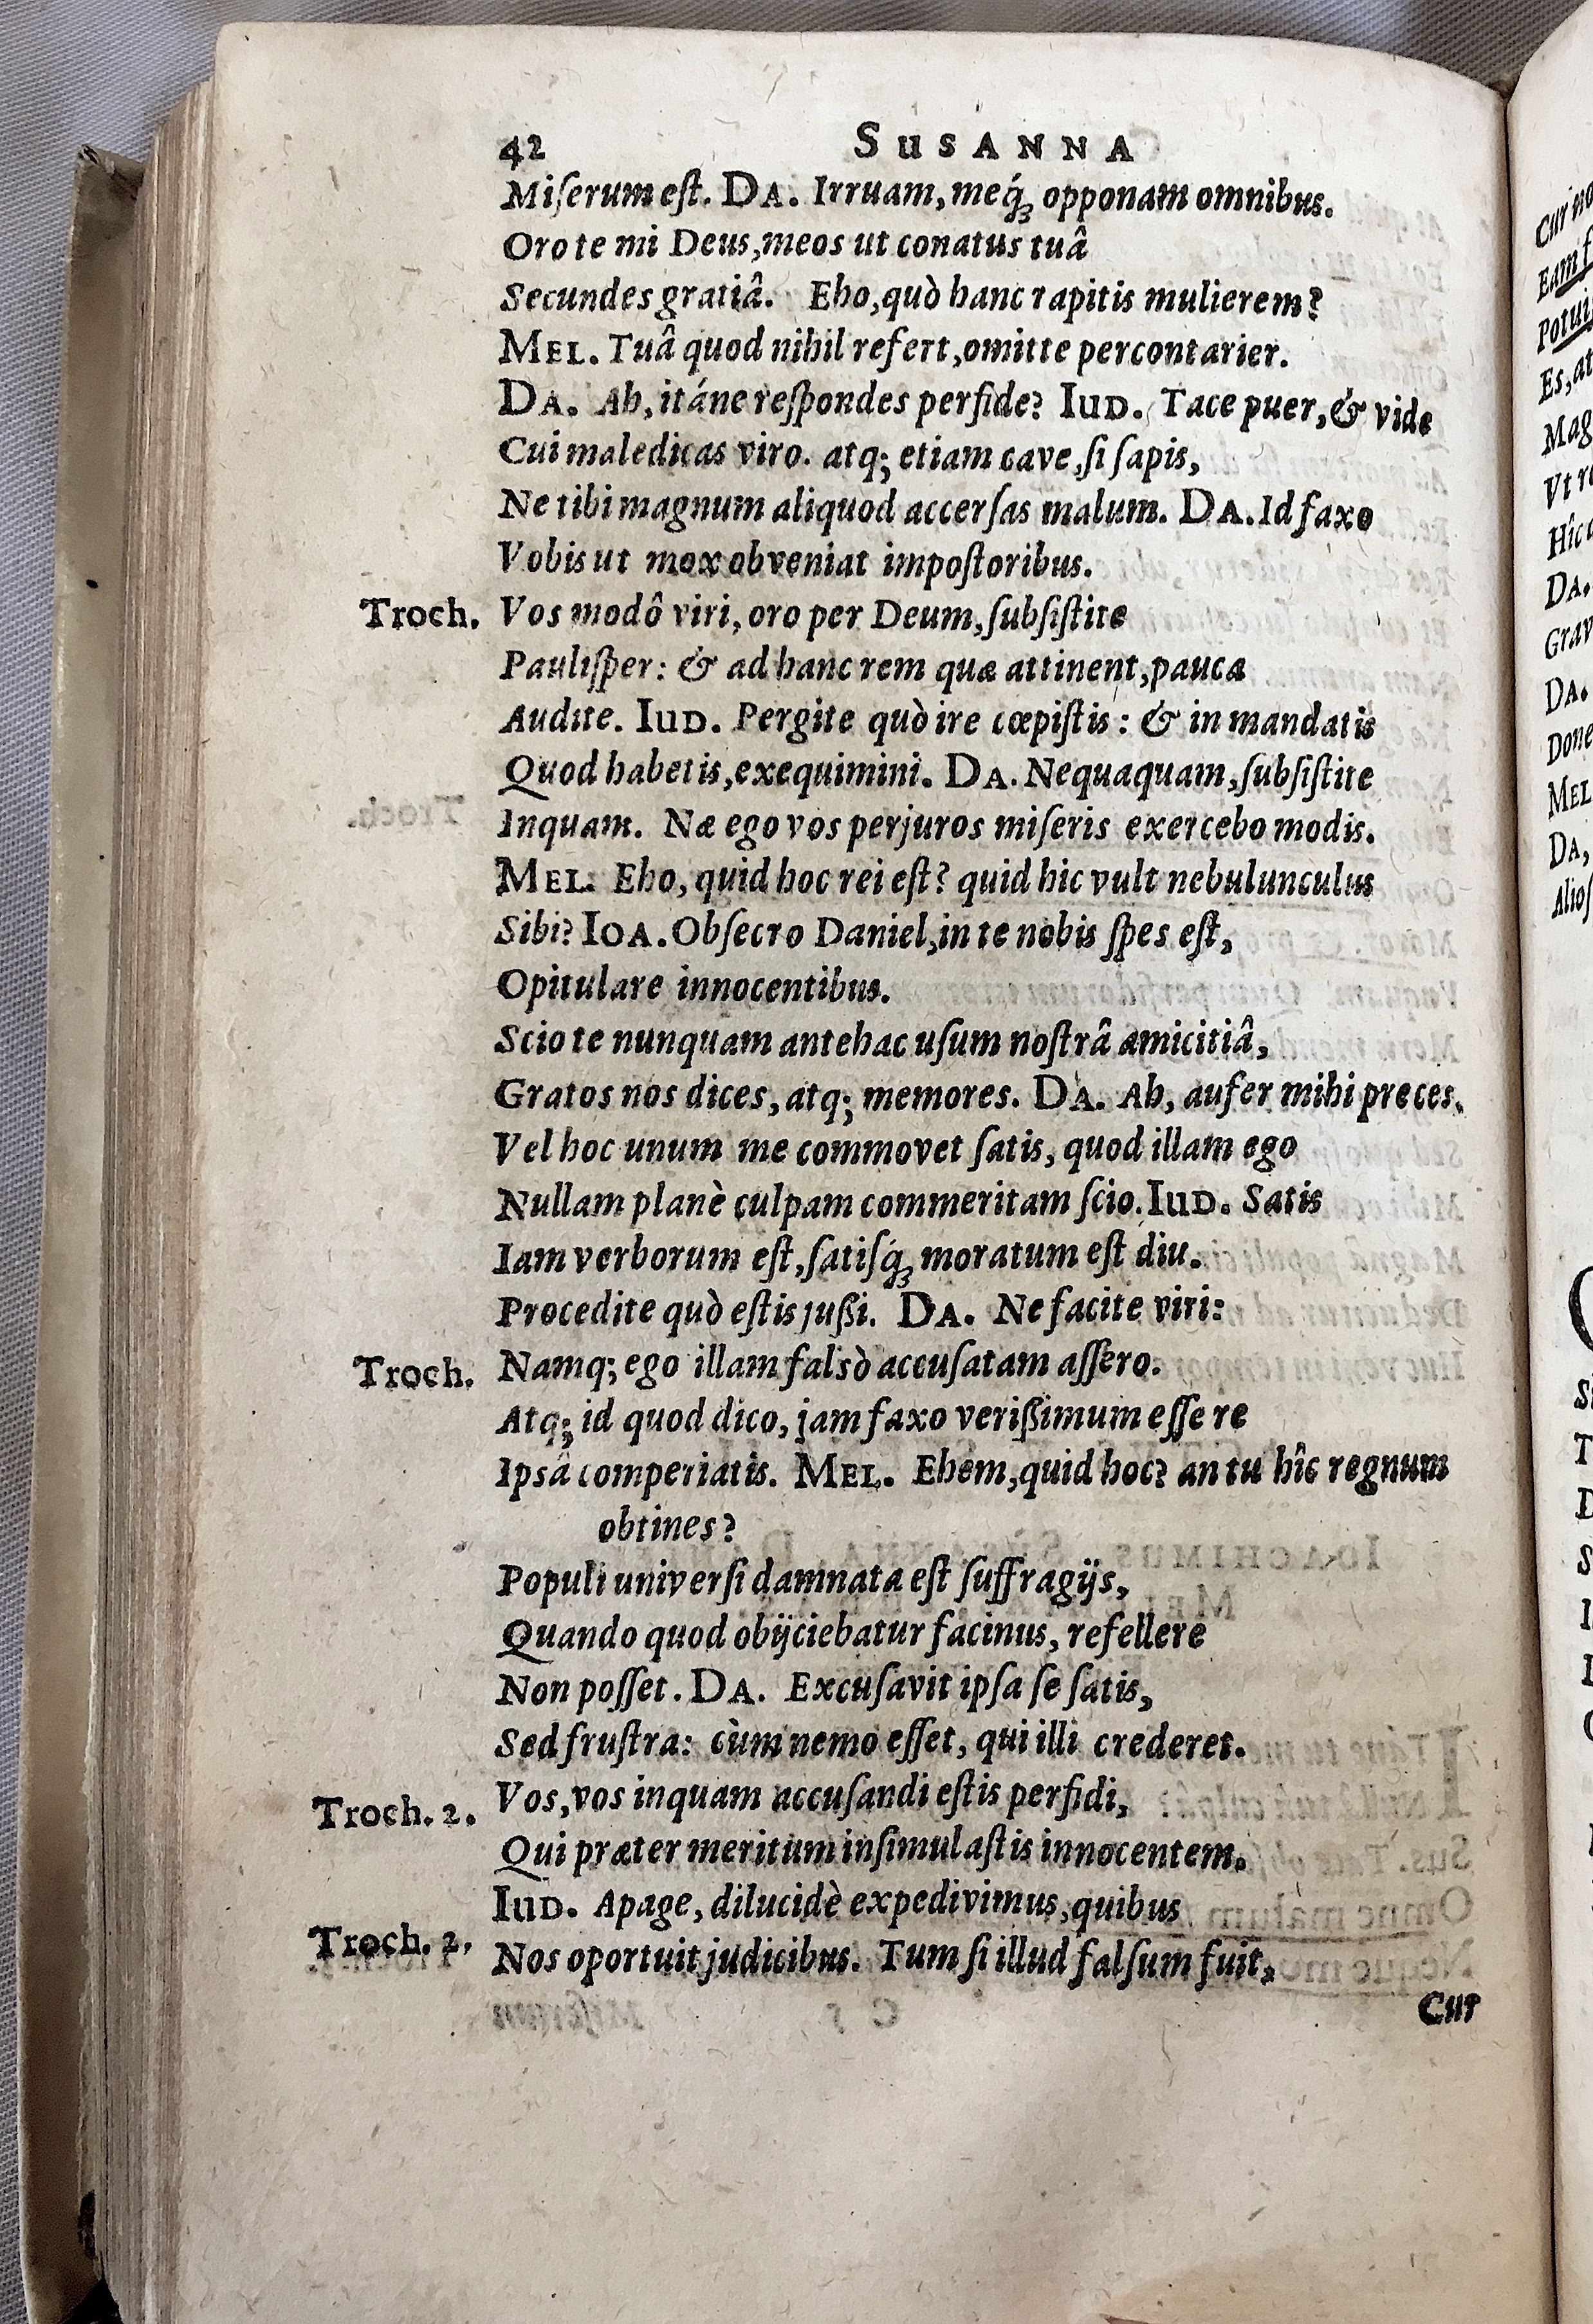 42 SUSANNA
Miſerum eſt. DA. Irruam, meq́ꝫ opponam omnibus.
Oro te mi Deus, meos ut conatus tuâ
Secundes gratiâ. Eho, quò hanc rapitis mulierem?
MEL. Tuâ quod nihil refert, omitte percontarier.
DA. Ah, itáne reſpondes perfide? IUD. Tace puer, & vide
Cui maledicas viro. atq; etiam cave, ſi ſapis,
Ne tibi magnum aliquod accerſas malum. DA. Id faxo
Vobis ut mox obveniat impoſtoribus.
Troch. Vos modô viri, oro per Deum, ſubſiſtite
Pauliſper: & ad hanc rem quæ attinent, pauca
Audite. IUD. Pergite quò ire cœpiſtis: & in mandatis
Quod habetis, exequimini. DA. Nequaquam, ſubſiſtite
Inquam. Næ ego vos perjuros miſeris exercebo modis.
MEL. Eho, quid hoc rei eſt? quid hic vult nebulunculus
Sibi? IOA. Obſecro Daniel, in te nobis ſpes eſt,
Opitulare innocentibus.
Scio te nunquam antehac uſum noſtrâ amicitiâ,
Gratos nos dices, atq; memores. DA. Ah, aufer mihi preces.
Vel hoc unum me commovet ſatis, quod illam ego
Nullam planè culpam commeritam ſcio. IUD. Satis
Iam verborum eſt, ſatiſq́ꝫ moratum eſt diu.
Procedite quò eſtis juſſi. DA. Ne facite viri:
Troch. Namq; ego illam falsò accuſatam aſſero.
Atq; id quod dico, jam faxo veriſſimum eſſe re
Ipsâ comperiatis. MEL. Ehem, quid hoc? an tu hîc regnum
obtines?
Populi univerſi damnata eſt ſuffragijs,
Quando quod obijciebatur facinus, refellere
Non poſſet. DA. Excuſavit ipſa ſe ſatis,
Sed fruſtra: cùm nemo eſſet, qui illi crederet.
Troch. 2. Vos, vos inquam accuſandi eſtis perfidi,
Qui præter meritum inſimulaſtis innocentem.
IUD. Apage, dilucidè expedivimus, quibus
Troch. 2. Nos oportuit judicibus. Tum ſi illud falſum fuit,
Cur